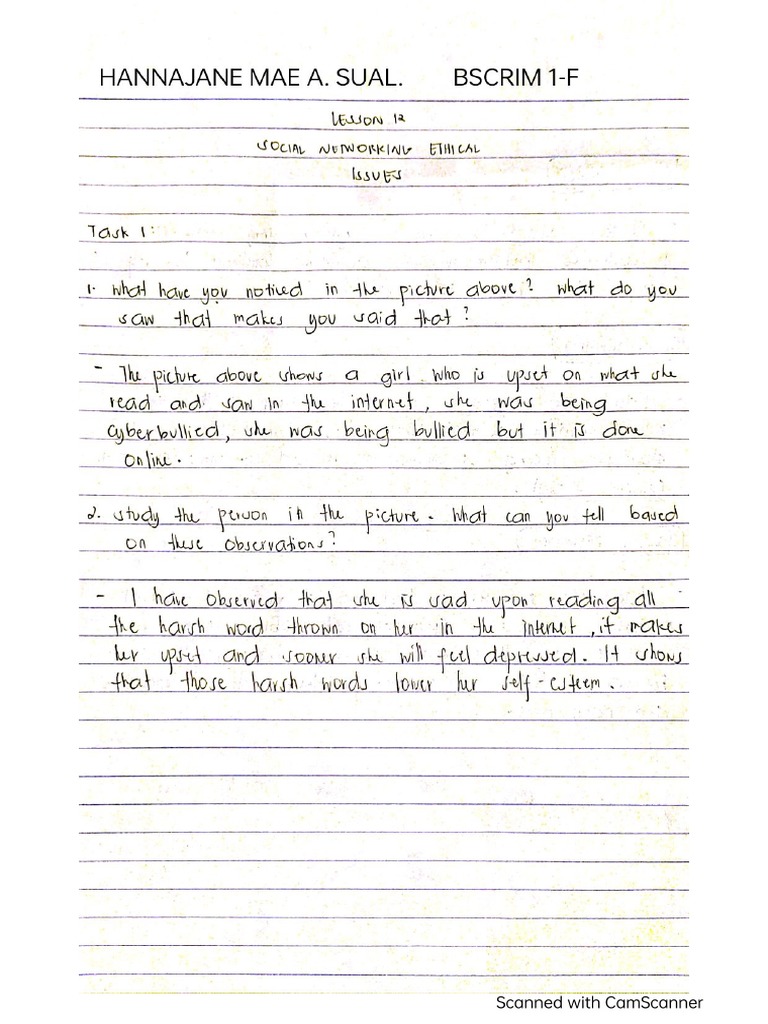 HANNAJANE MAE A. SUAL. BSCRIM 1-F
LESSON 12
SOCIAL NETWORKING ETHICAL
ISSUES
Task 1:
1. What have you noticed in the picture above? What do you
saw that makes you said that?
- The picture above shows a girl who is upset on what she
read and saw in the internet, she was being
cyberbullied, she was being bullied but it is done
online.
2. Study the person in the picture. What can you tell based
on these observations?
- I have observed that she is sad upon reading all
the harsh word thrown on her in the internet, it makes
her upset and sooner she will feel depressed. It shows
that those harsh words lower her self-esteem.
Scanned with CamScanner